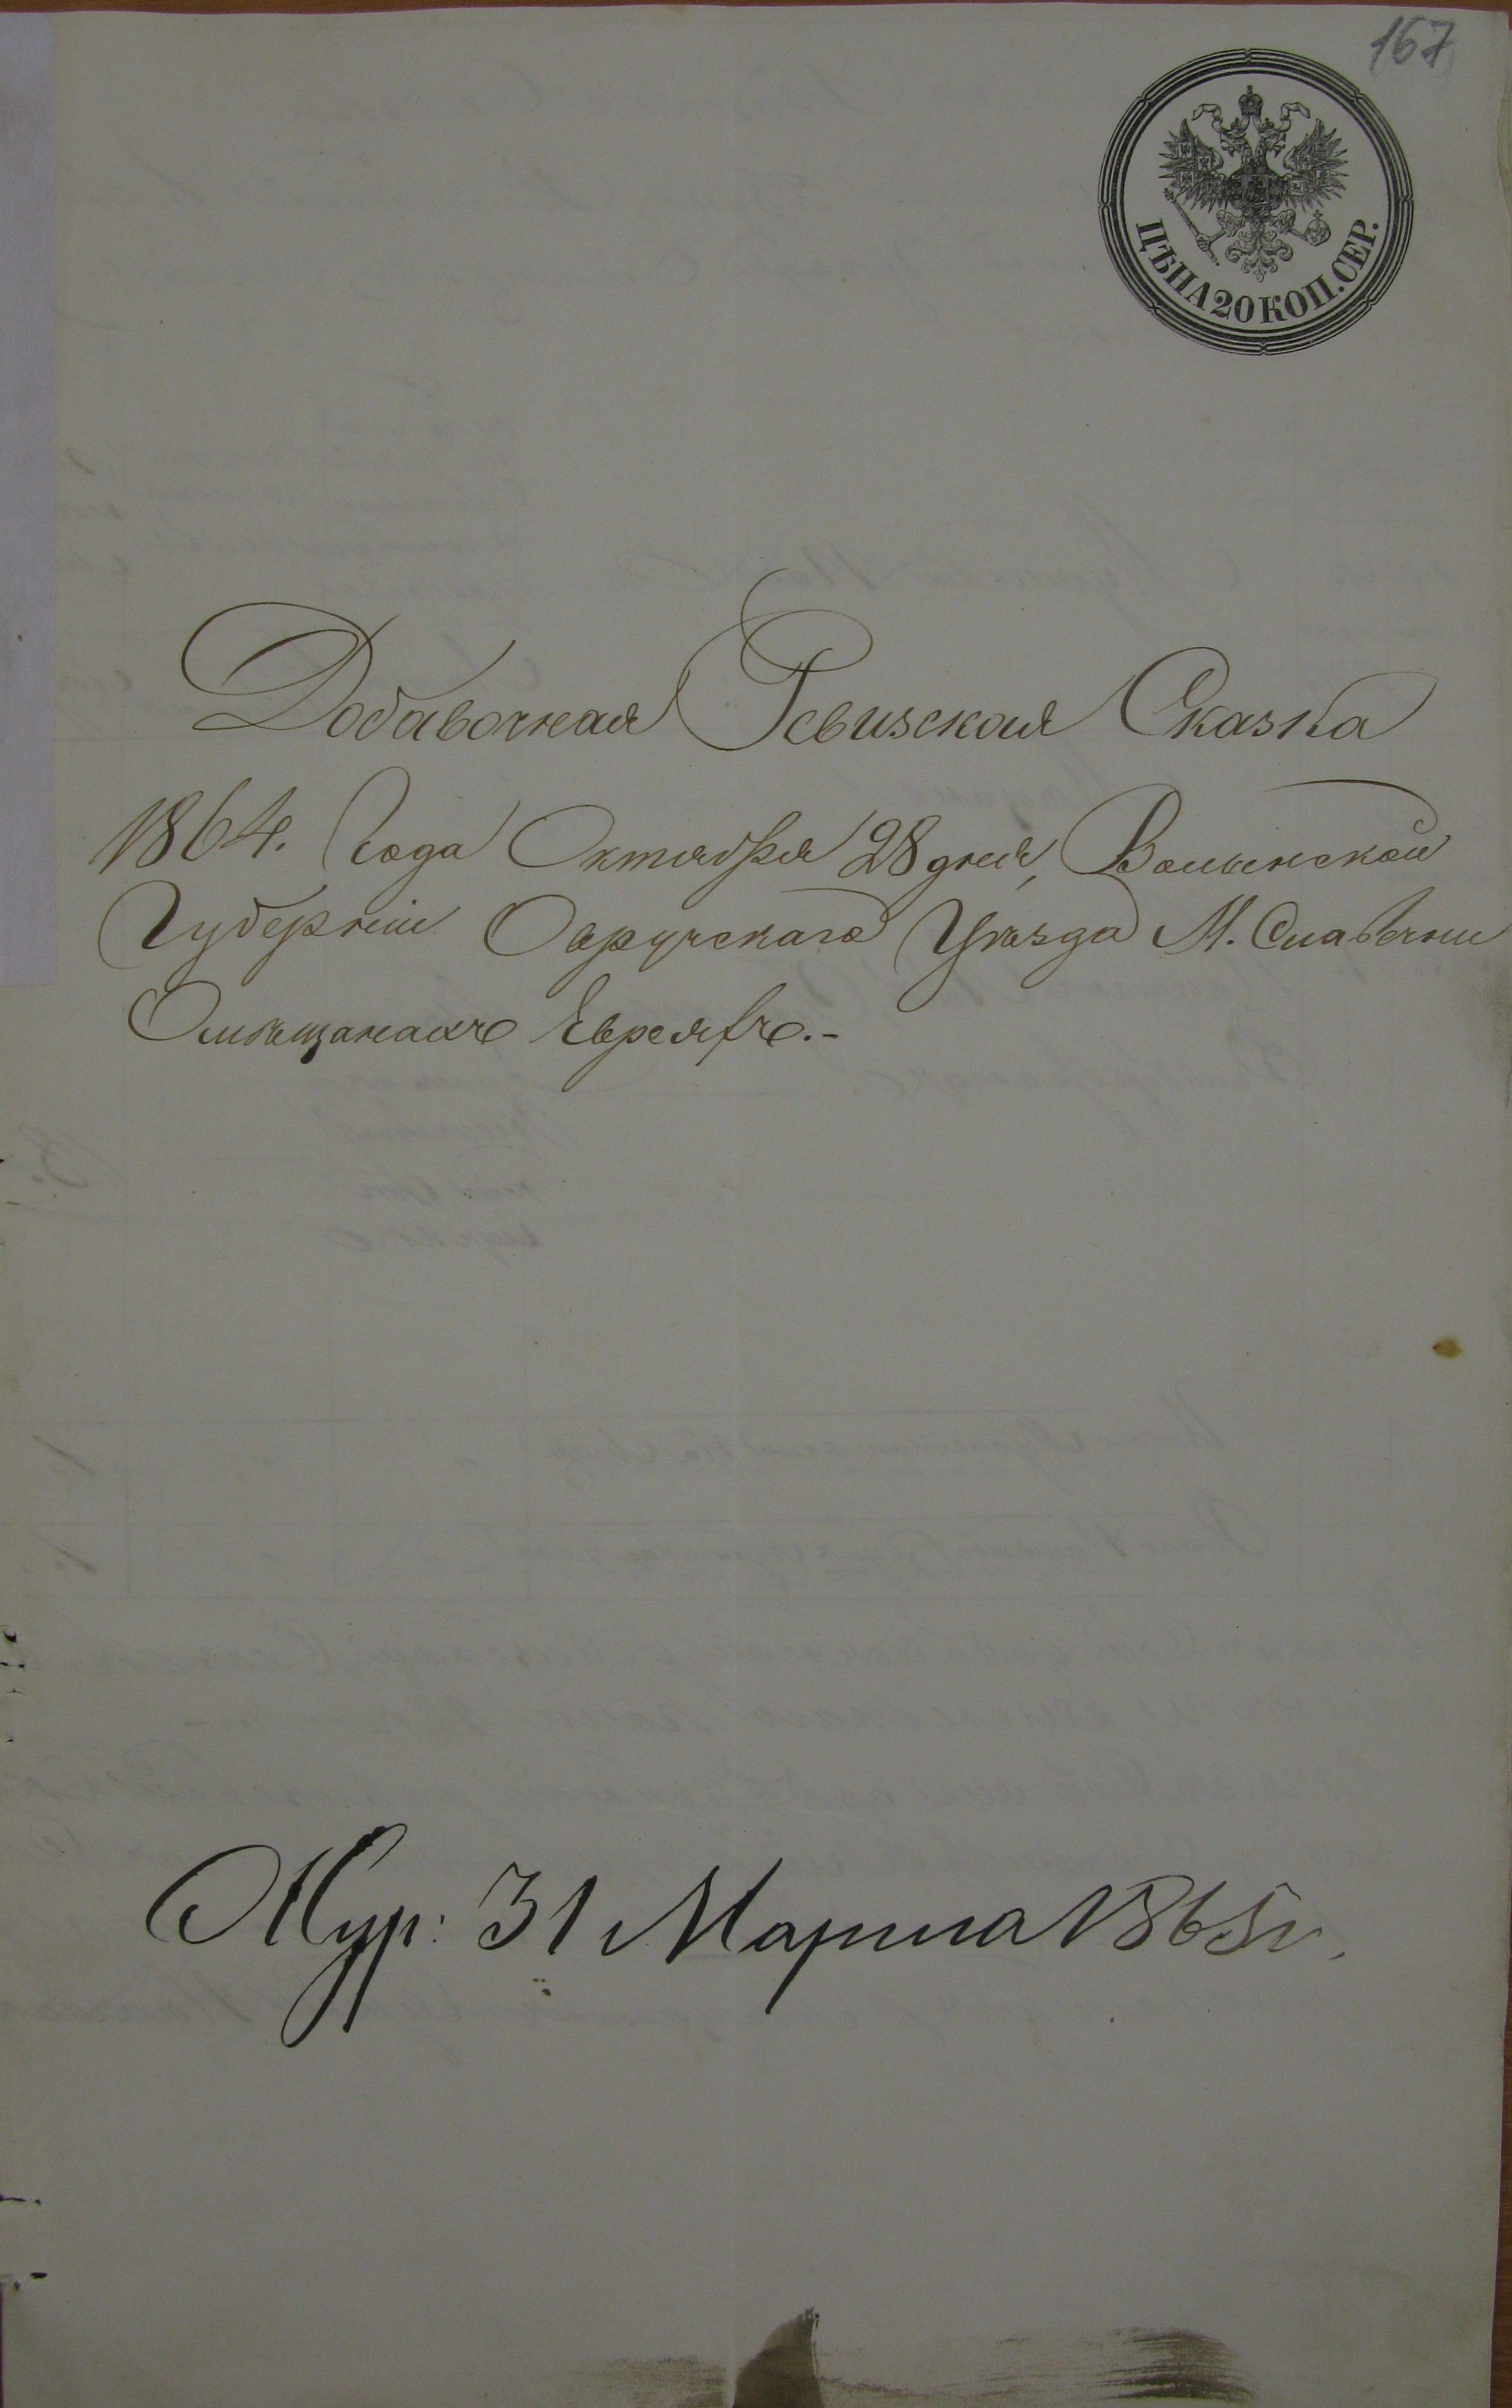 167
ЦѢНА 20 КОП. СЕР.
Добавочная Ревизская Сказка
1864. Года Октября 28 дня, Волынской
Губерніи Овручскаго Уѣзда М. Славечни
О мѣщанахъ Евреяхъ.-
Жур: 31 Марта 1865 г.